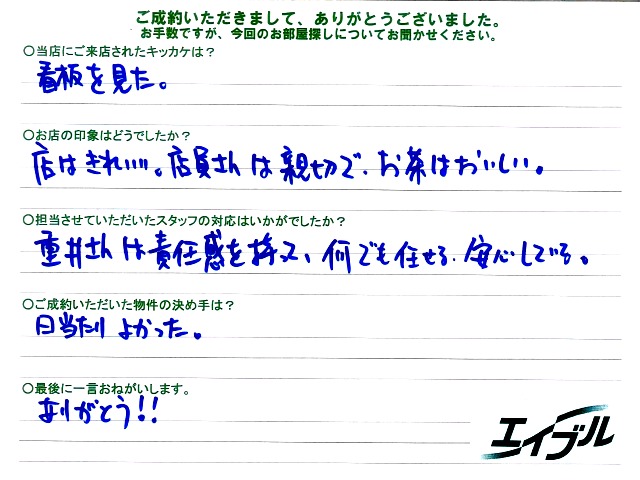 ご成約いただきまして、ありがとうございました。
お手数ですが、今回のお部屋探しについてお聞かせください。
○当店にご来店されたキッカケは？
看板を見た。
○お店の印象はどうでしたか？
店はきれいい。店員さんは親切で、お茶はおいしい。
○担当させていただいたスタッフの対応はいかがでしたか？
重井さんは責任感を持って、何でも任せる、安心している。
○ご成約いただいた物件の決め手は？
日当たりよかった。
○最後に一言おねがいします。
ありがとう!!
エイブル